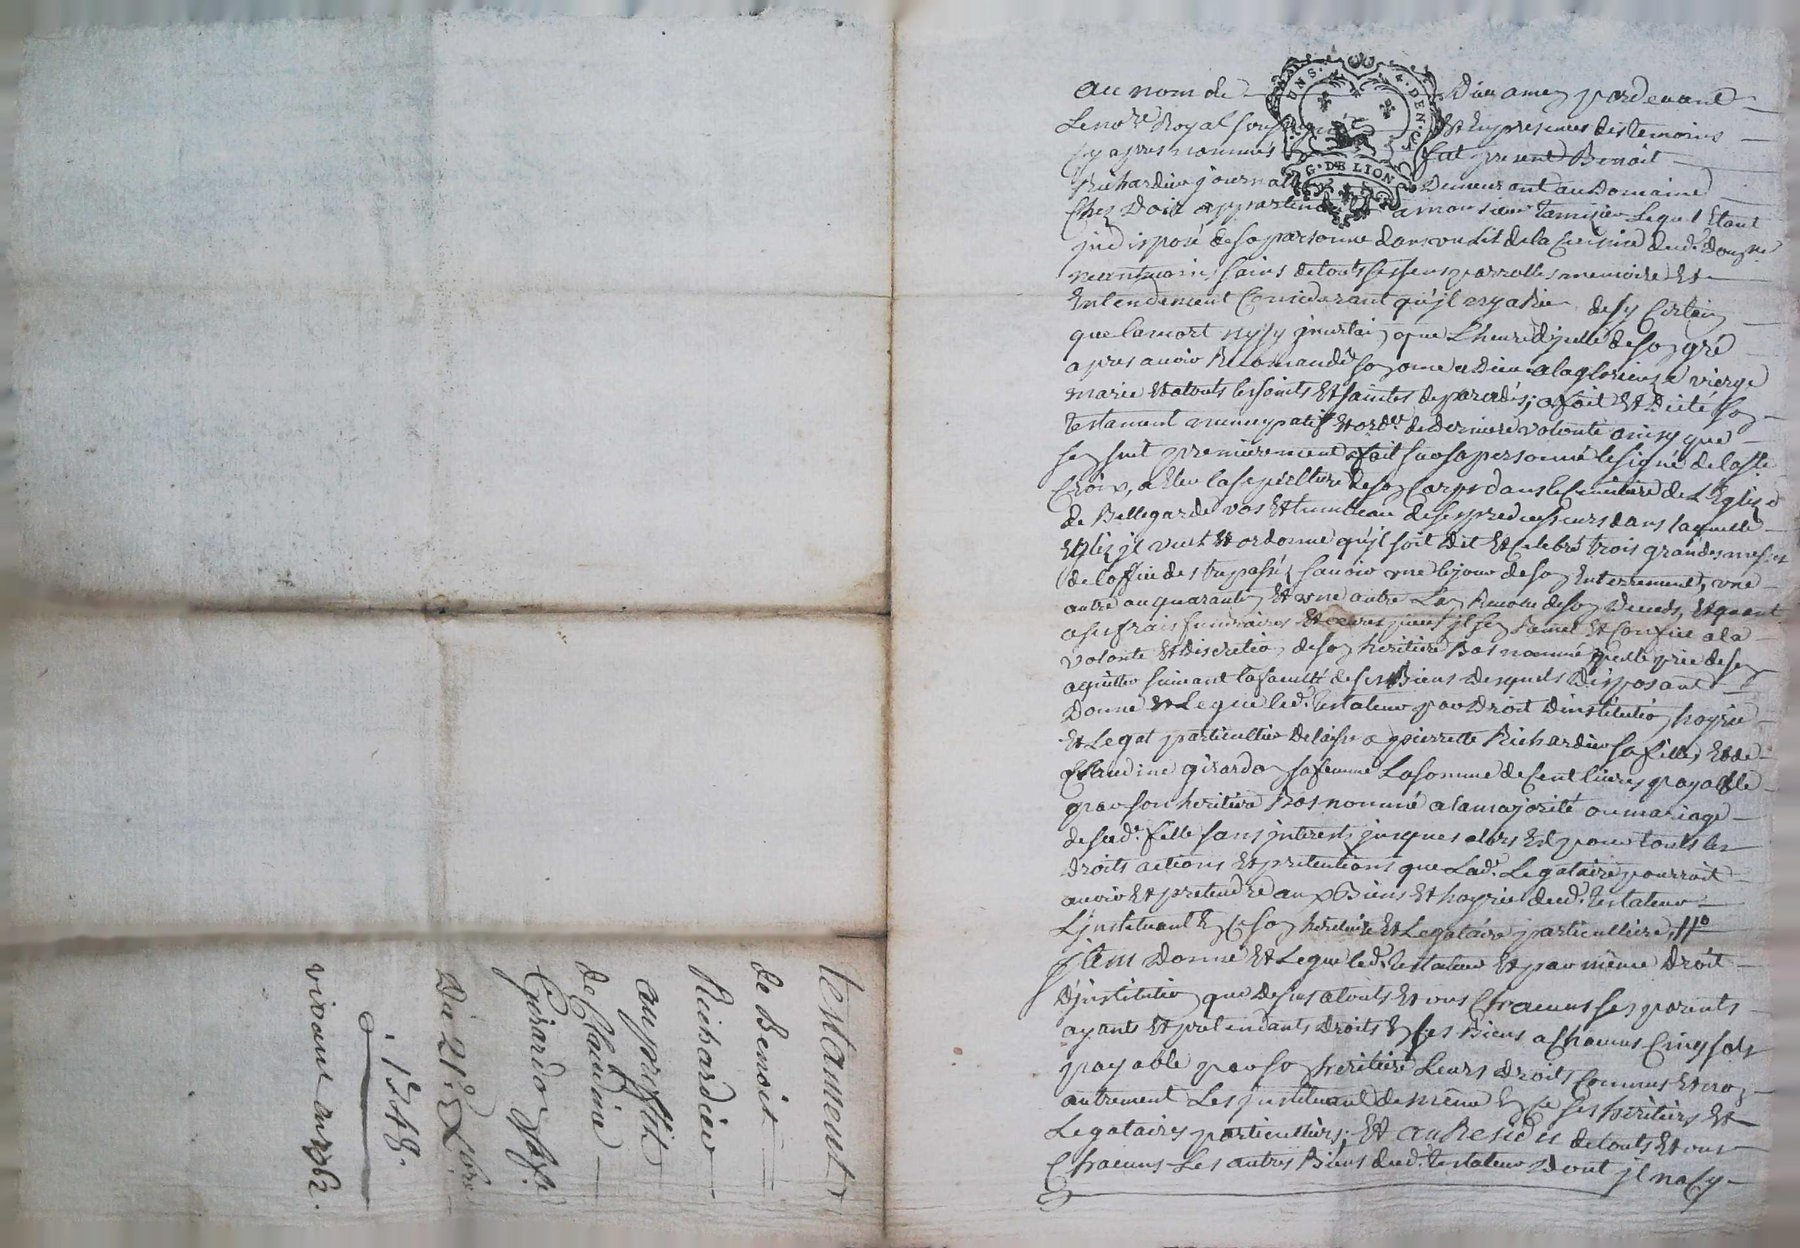 au nom de Dieu amen pardevant
Le nore. Royal soussigné Et En presences des temoins
cy apres nommés fut present Benoit
Richardier journallier Demeurant au Domaine
Chez Doir appartenant a monsieur tamisier Lequel Etant
jndisposé de sa personne dans un Lit de la Cuisine dud. Domne
neantmoins sains de touts ses sens parrolles memoire Et
Entendement Considerant qu'jl ny a Rien de sy Certain
que la mort ny sy jncertain que L'heure d'jcelle de son gré
apres avoir Recomandé son ame a Dieu a la glorieuze vierge
marie Et a touts les saints Et saintes de paradis; a fait Et Dicté son
testament nuncupatif Et ordce. de Derniere volonté ainsy que
sen suit premierement a fait sur sa personne le signe de la Ste
Croix, a Eleu la sepulture de son Corps dans le Cimitiere de L'Eglize
de Bellegarde vas Et tumbeau de ses predecesseurs dans laquelle
Eglize jl veut Et ordonne qu'jl soit Dit Et Celebré trois grandes messes
de l'office des trepassés sauoir une le jour de son Enterrement, une
autre au quarantin Et une autre La Revolu de son Deceds, Et quant
a ses frais funeraires Et œuvres pieuses jl sen Remet Et Confie a la
volonté Et discretion de son heritiere Bas nommé quelle prie de sen
aquitter suivant la faculté de ses Biens Desquels Disposant
Donne Et Legue led. testateur par Droit D'institution hoyrie
Et Legat particullier delaisse a pierrette Richardier sa fille, Et de
Claudine girardon sa femme La somme de Cent livres payable
par son heritiere Bas nommé a la majorité ou mariage
de sad. fille sans jnterests jusques alors Et pour touts les
Droits actions Et pretentions que Lad. Legataire pourroit
avoir Et pretendre aux Biens Et hoyrie dud. testateur
L'jnstituant En Ce son heritiere Et Legataire particulliere, //o
jtem Donne Et Legue led. testateur Et par même Droit
D'jnstitution que Dessus a touts Et uns Chacuns ses parents
ayants Et pretendants Droits En ses Biens a Chacuns Cinq sols
payable par sa heritiere Leurs Droits Connus Et non
autrement Les jnstituant de même En Ce ses heritiers Et
Legataires particulliers; Et au Residu de touts Et uns
Chacuns Les autres Biens dud. testateur Dont jl na Cy
G. DE LION
testament
de Benoit
Richardier
au proffit
de Claudine
Girardon sa fe.
Du 21e. xbre
1748.
vivant en 1762.